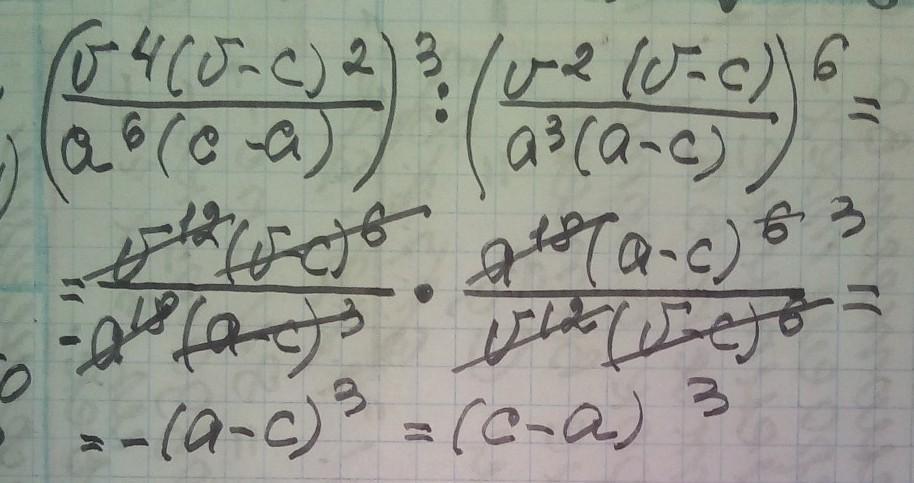 (b^4(b-c)^2 / a^6(c-a))^3 : (b^2(b-c) / a^3(a-c))^6 =
= b^12(b-c)^6 / -a^18(a-c)^3 · a^18(a-c)^6 3 / b^12(b-c)^6 =
= -(a-c)^3 = (c-a)^3